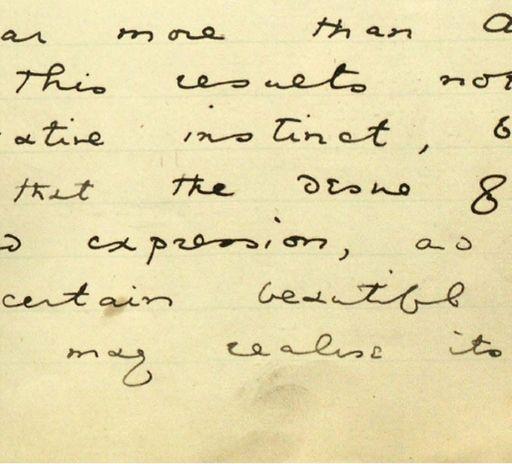 ar more than a
This results not
ative instinct, b
that the desire of
expression, as
certain beautiful
may realise its